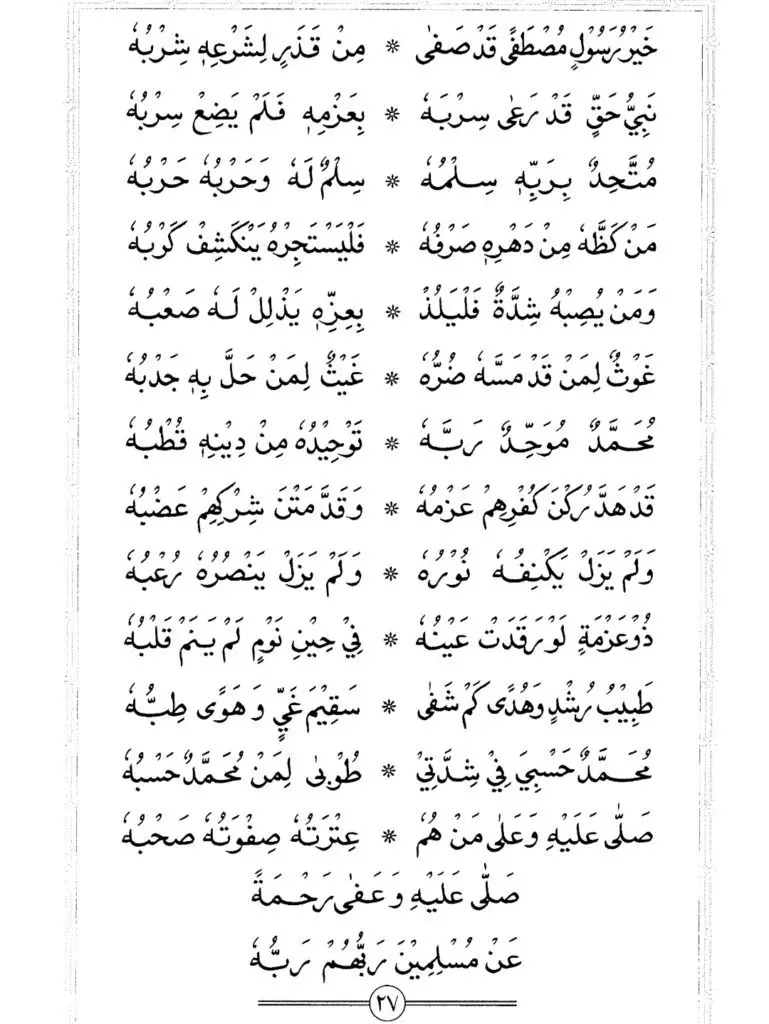 خَيْرُ رَسُوْلٍ مُصْطَفًى قَدْ صَفٰى * مِنْ قَذَرٍ لِشَرْعِهٖ شِرْبُهٗ
نَبِيُّ حَقٍّ قَدْ رَعٰى سِرْبَهٗ * بِعَزْمِهٖ فَلَمْ يَضِعْ سِرْبُهٗ
مُتَّحِدٌ بِرَبِّهٖ سِلْمُهٗ * سِلْمٌ لَهٗ وَحَرْبُهٗ حَرْبُهٗ
مَنْ كَظَّهٗ مِنْ دَهْرِهٖ صَرْفُهٗ * فَلْيَسْتَجِرْهُ يَنْكَشِفْ كَرْبُهٗ
وَمَنْ يُصِبْهُ شِدَّةٌ فَلْيَلُذْ * بِعِزِّهٖ يَذْلِلْ لَهٗ صَعْبُهٗ
غَوْثٌ لِمَنْ قَدْ مَسَّهٗ ضُرُّهٗ * غَيْثٌ لِمَنْ حَلَّ بِهٖ جَدْبُهٗ
مُحَمَّدٌ مُوَحِّدٌ رَبَّهٗ * تَوْحِيْدُهٗ مِنْ دِيْنِهٖ قُطْبُهٗ
قَدْ هَدَّ رُكْنَ كُفْرِهِمْ عَزْمُهٗ * وَقَدَّ مَتْنَ شِرْكِهِمْ عَضْبُهٗ
وَلَمْ يَزَلْ يَكْنِفُهٗ نُوْرُهٗ * وَلَمْ يَزَلْ يَنْصُرُهٗ رُعْبُهٗ
ذُوْ عَزْمَةٍ لَوْ رَقَدَتْ عَيْنُهٗ * فِيْ حِيْنِ نَوْمٍ لَمْ يَنَمْ قَلْبُهٗ
طَبِيْبُ رُشْدٍ وَهُدًى كَمْ شَفٰى * سَقِيْمَ غَيٍّ وَهَوًى طِبُّهٗ
مُحَمَّدٌ حَسْبِيَ فِيْ شِدَّتِيْ * طُوْبٰى لِمَنْ مُحَمَّدٌ حَسْبُهٗ
صَلّٰى عَلَيْهِ وَعَلٰى مَنْ هُمُ * عِتْرَتُهٗ صِفْوَتُهٗ صَحْبُهٗ
صَلّٰى عَلَيْهِ وَعَفٰى رَحْمَةً
عَنْ مُسْلِمِيْنَ رَبُّهُمْ رَبُّهٗ
٢٧